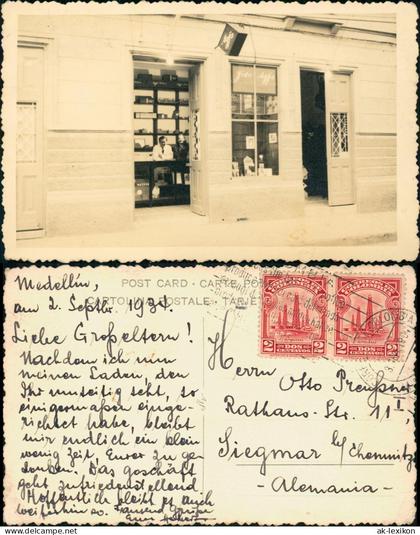 Foto Agfa
POST CARD - CARTE POSTALE
CARTOLINA POSTALE - TARJETA
Medellín,
am 2. Septbr. 1934.
Liebe Großeltern!
Nachdem ich nun
meinen Laden, den
Ihr umseitig seht, so
einigermaßen einge-
richtet habe, bleibt
mir endlich ein klein
wenig Zeit, Eurer zu ge-
denken. Das Geschäft
geht zufriedenstellend
Hoffentlich bleibt es auch
weiterhin so. Tausend Grüße
Euer
CORREOS DE COLOMBIA
2 DOS CENTAVOS 2
2 DOS CENTAVOS 2
Herrn
Otto Preußner
Rathaus-Str. 11 I
Siegmar b/Chemnitz
- Alemania -
© www.ak-lexikon.de